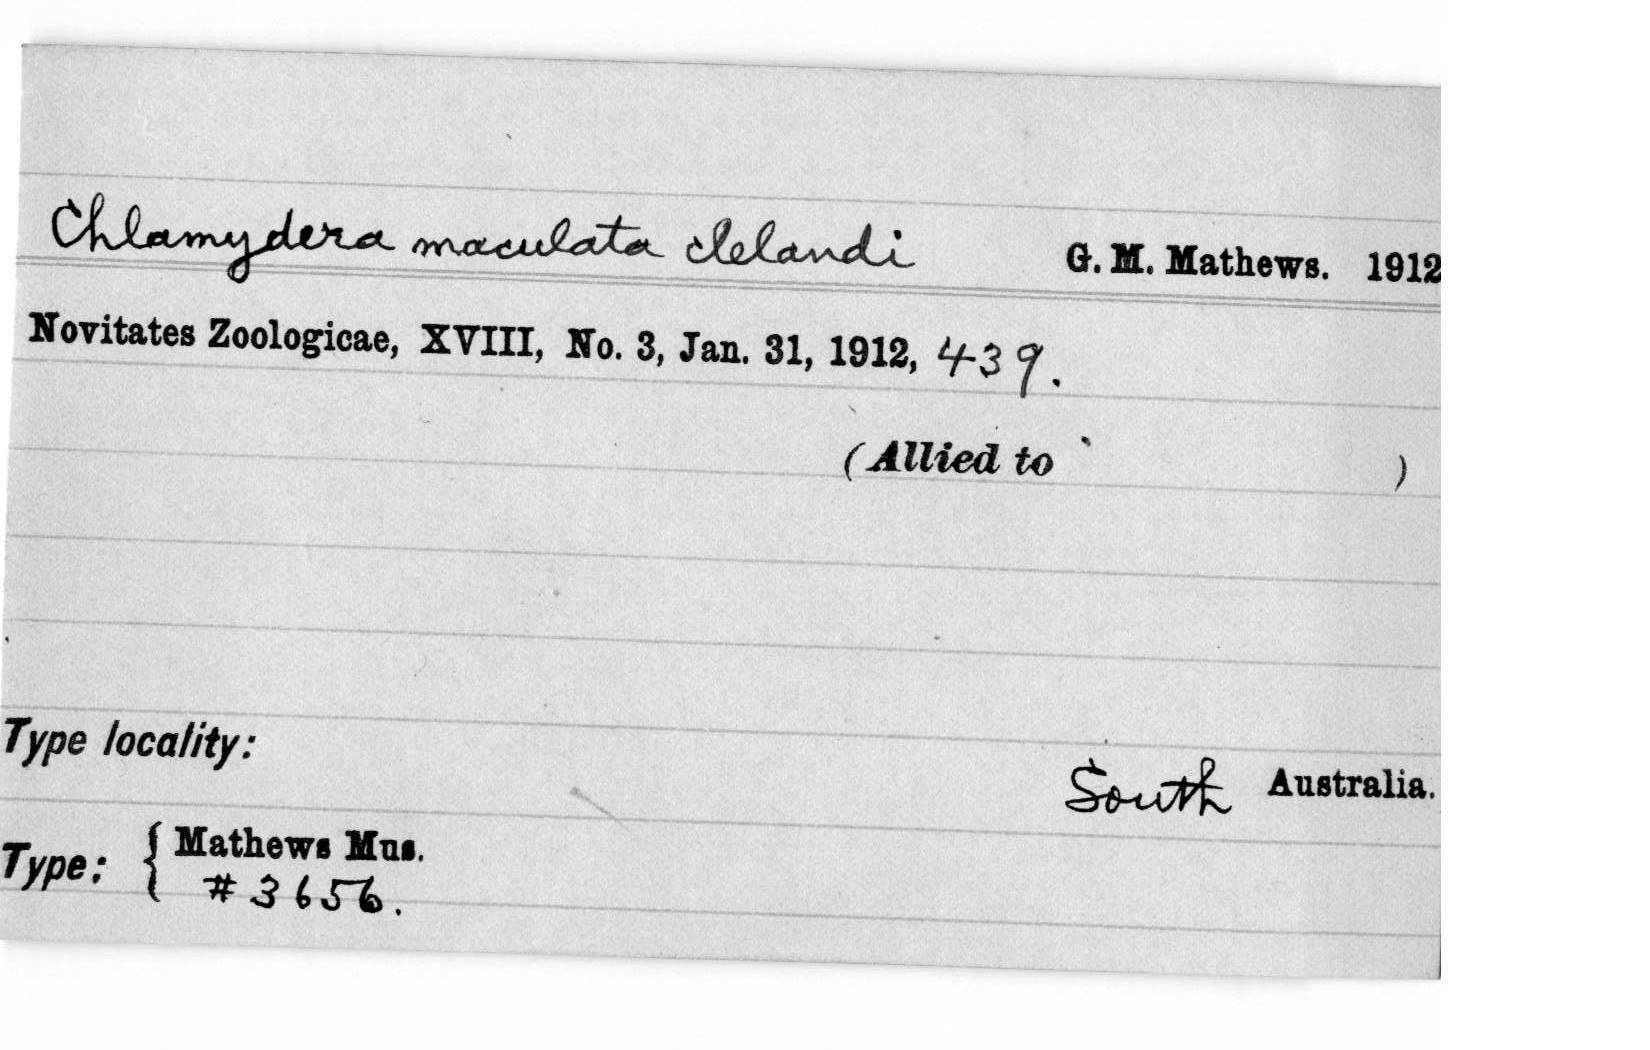 Chlamydera maculata clelandi G. M. Mathews. 1912
Novitates Zoologicae, XVIII, No. 3, Jan. 31, 1912, 439.
(Allied to )
Type locality:
South Australia.
Type: { Mathews Mus.
#3656.